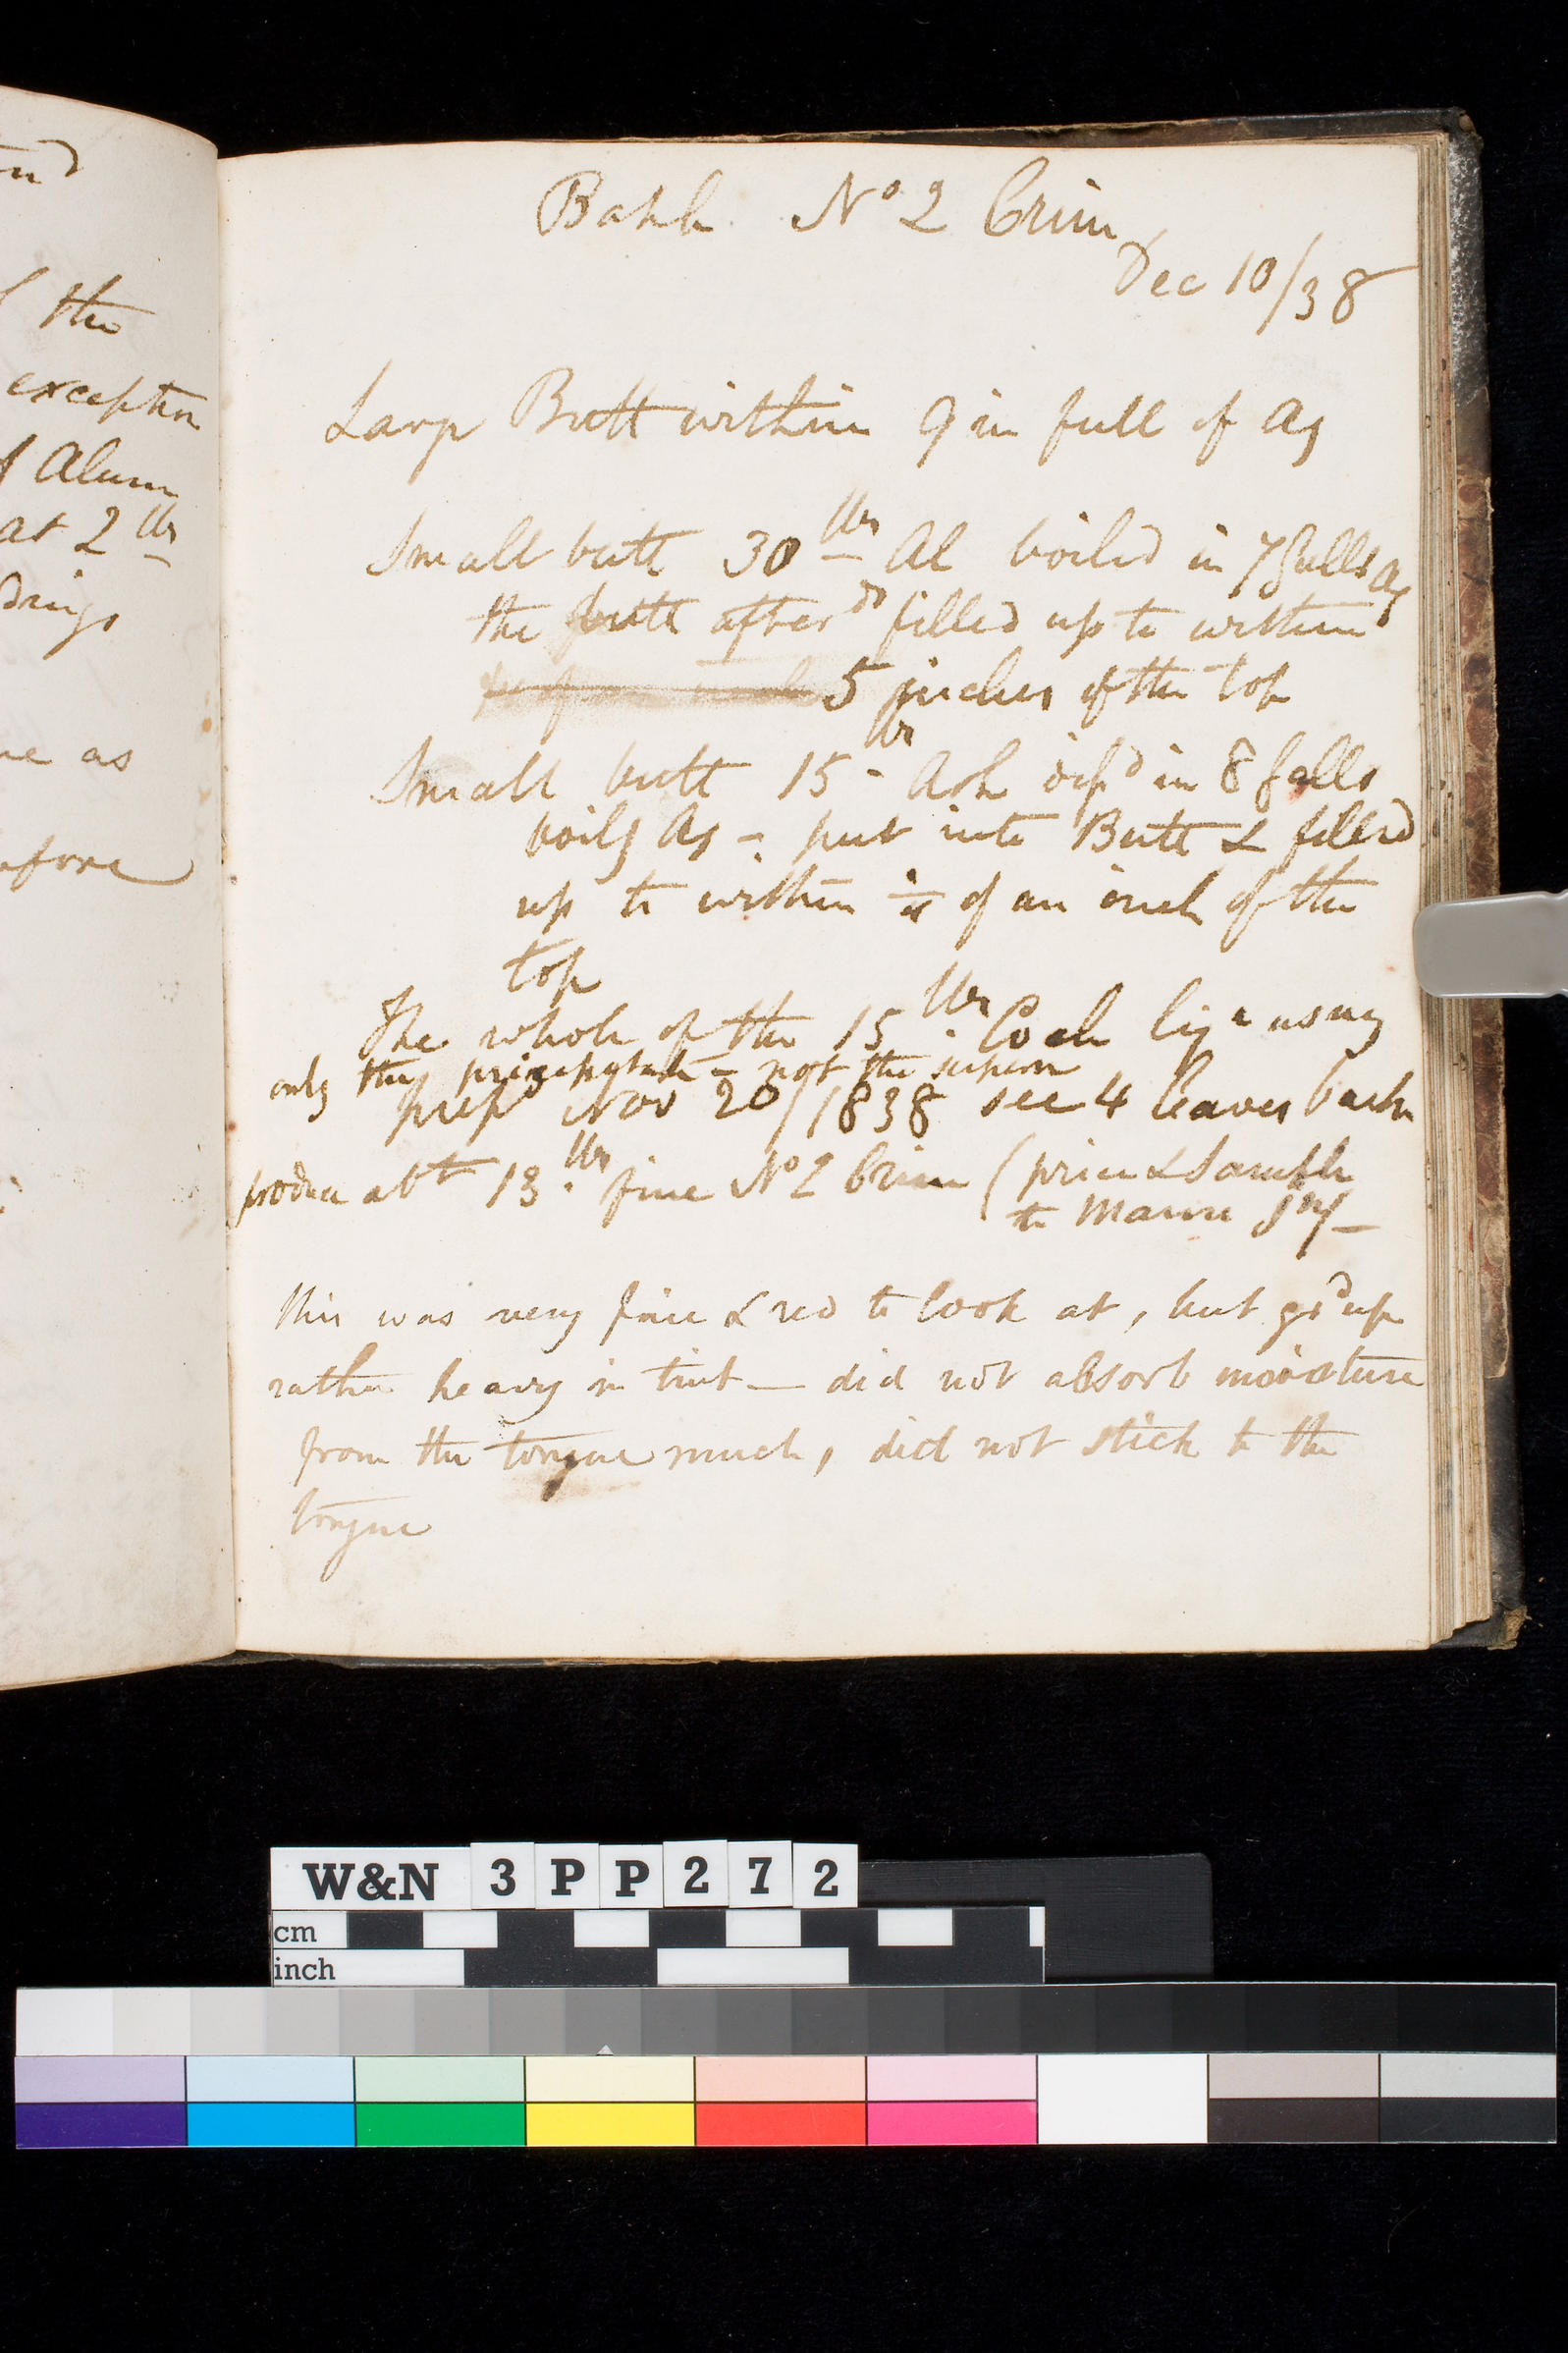 nd
the
exception
Alum
at 2 lbs
dings
ne as
efore
Batch No 2 Crim
Dec 10/38
Large Butt within 9 in full of Aq
Small butt 30 lbs Al boiled in 7 Galls Aq
the butt afterds filled up to within
5 inches of the top
Small butt 15 lbs Ash in 8 galls
boilg Aq - put into Butt & filled
up to within of an inch of the
top
The whole of the 15 lbs Coch liqr using
only the precipitate - not the supern
prepd Nov 20/1838 see 4 leaves back
produce abt 13 lbs fine No 2 Crim (price & Sample
to
this was very fine & red to look at, but grd up
rather heavy in tint — did not absorb moisture
from the tongue much, did not stick to the
tongue
W&N 3PP272
cm
inch